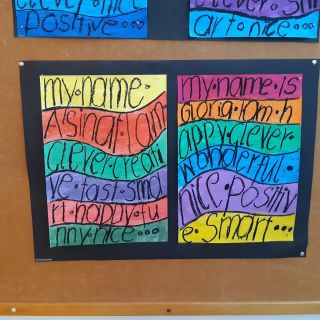 clever·nice
positive•••
clever·sm
art·nice•••
my·name·
Asinat·Iam·
clever·creati
ve·fast·sma
rt·happy·fu
nny·nice•••
my·name·is
Gloria·Iam·h
appy·clever·
wonderful·
nice·positiv
e·smart•••